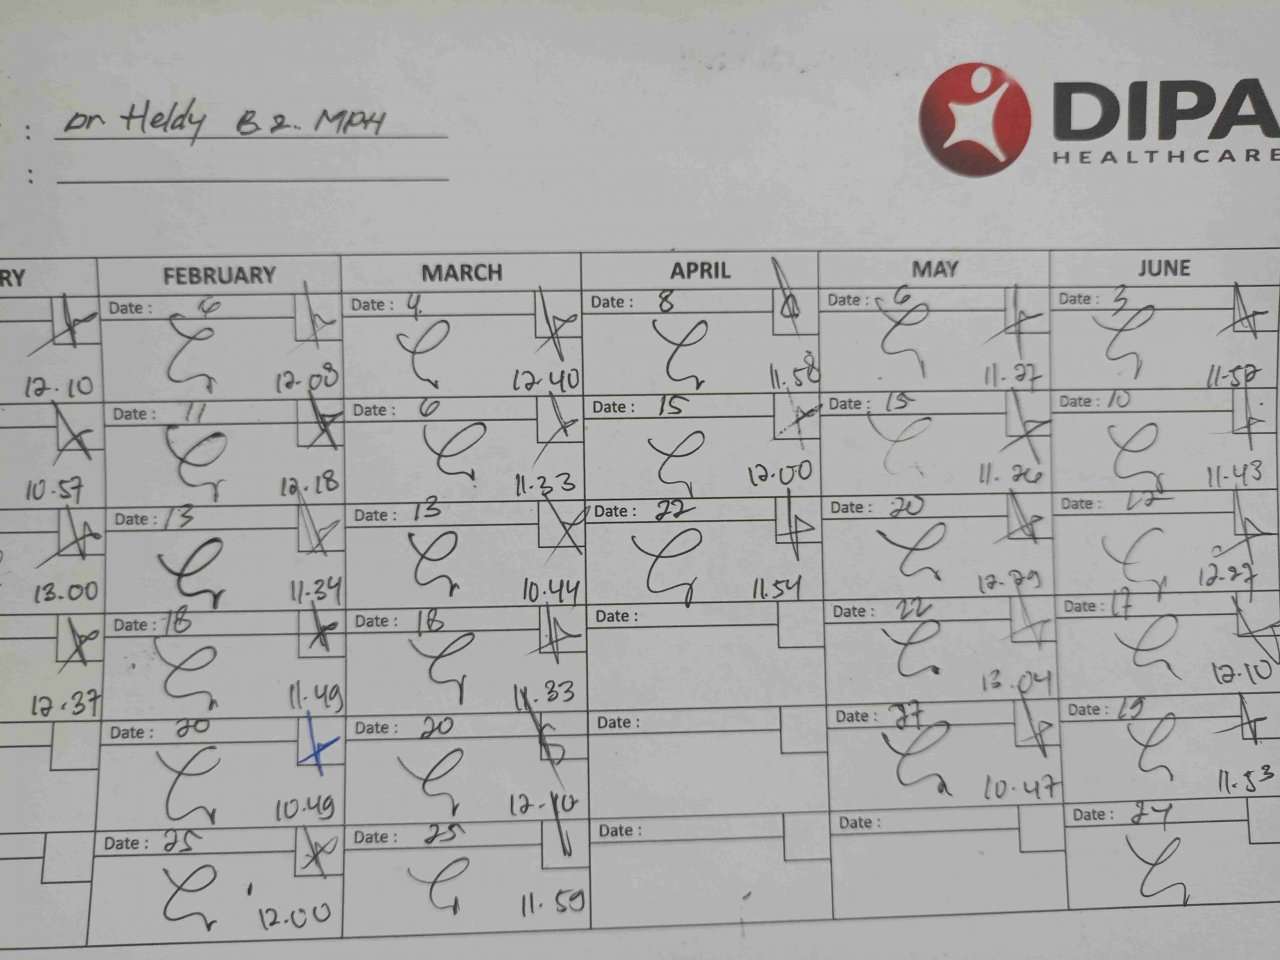 : Dr Heldy B2. MPH
:
DIPA
HEALTHCARE
RY FEBRUARY MARCH APRIL MAY JUNE
Date : 6 Date : 4. Date : 8 Date : 6 Date : 3
12.10 12.08 12.40 11.58 11.27 11.52
Date : 11 Date : 6 Date : 15 Date : 15 Date : 10
10.57 12.18 11.33 12.00 11.26 11.43
Date : 13 Date : 13 Date : 22 Date : 20 Date : 12
13.00 11.34 10.44 11.54 12.29 12.27
Date : 18 Date : 18 Date : Date : 22 Date : 17
12.37 11.49 11.33 13.04 12.10
Date : 20 Date : 20 Date : Date : 27 Date : 19
10.49 12.10 10.47 11.53
Date : 25 Date : 25 Date : Date : Date : 24
12.00 11.59